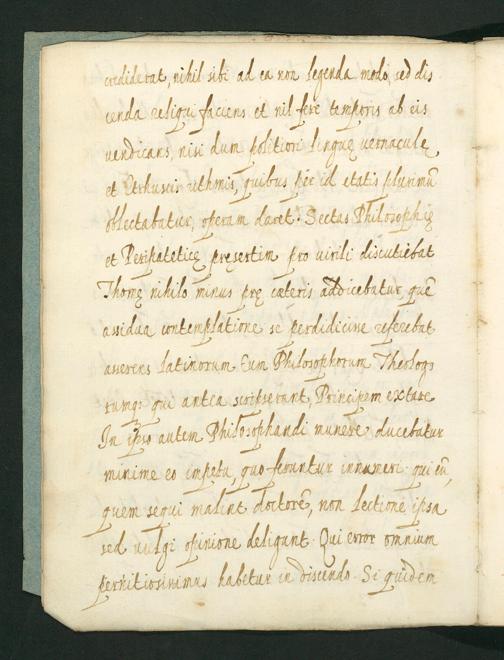 crediderat, nihil sibi ad ea non legenda modo, sed dis
cenda reliqui faciens et nil fere temporis ab eis
vendicans, nisi dum politiori linguę vernaculę
et Etrhuscis rithmis, quibus per id etatis plurimū
oblectabatur, operam daret. Sectas Philosophię
et Peripateticę pręsertim pro virili discutiebat
Thomę nihilo minus prę cæteris addicebatur, quē
assidua contemplatione se perdidicisse referebat
asserens latinorum Eum Philosophorum Theolog
rumq; qui antea scripserant, Principem extare
In ipso autem Philosophandi munere ducebatur
minime eo impetu, quo feruntur innumeri qui eū,
quem sequi malint doctorē, non lectione ipsa
sed vulgi opinione deligant. Qui error omnium
pernitiosissimus habetur in discendo. Si quidem